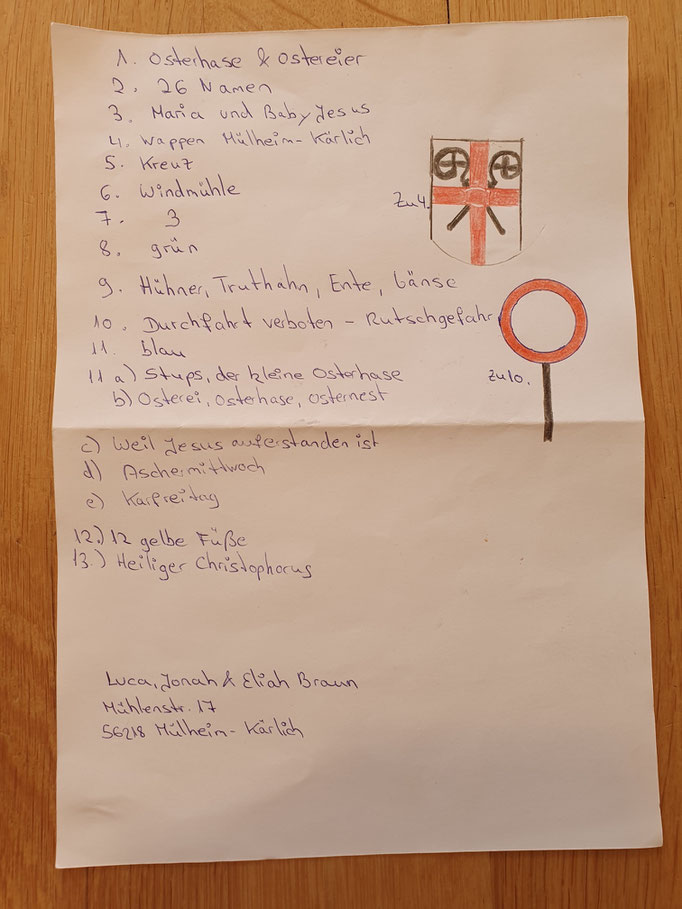 1. Osterhase & Ostereier
2. 26 Namen
3. Maria und Baby Jesus
4. Wappen Mülheim-Kärlich
5. Kreuz
6. Windmühle
Zu 4.
7. 3
8. grün
9. Hühner, Truthahn, Ente, Gänse
10. Durchfahrt verboten - Rutschgefahr
11. blau
11 a) Stups, der kleine Osterhase
zu 10.
b) Osterei, Osterhase, Osternest
c) Weil Jesus auferstanden ist
d) Aschermittwoch
e) Karfreitag
12.) 12 gelbe Füße
13.) Heiliger Christophorus
Luca, Jonah & Eliah Braun
Mühlenstr. 17
56218 Mülheim-Kärlich